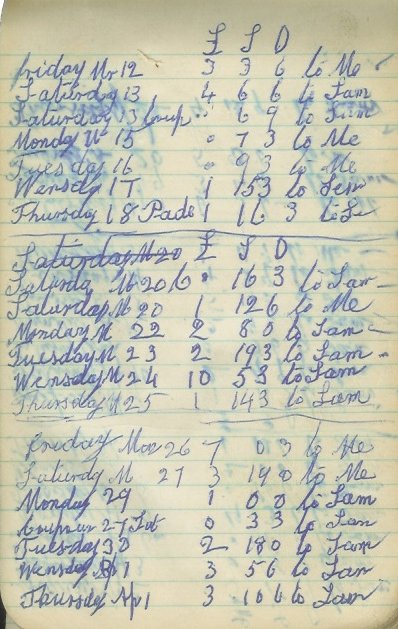 £ S D
Friday Mr 12 3 3 6 to Me
Saturday 13 4 6 6 to Sam
Saturday 13 6 9 to Sam
Monday M 15 0 7 3 to Me
Tuesday 16 0 9 3 to Me
Wensdy 17 1 15 3 to Sem
Thursday 18 Pade 1 16 3 to
Saturday M 20 £ S D
Saturday M 20 16 3 to Sam
Saturday M 20 1 12 6 to Me
Monday M 22 2 8 0 to Sam
Tuesday M 23 2 19 3 to Sam
Wensday M 24 10 5 3 to Sam
Thursday M 25 1 14 3 to Sam
Friday Mar 26 7 0 3 to Me
Saturdy M 27 3 14 0 to Me
Monday 29 1 0 0 to Sam
27 Sat 0 3 3 to Sam
Tuesday 30 2 18 0 to Sam
Wensdy Ap 1 3 5 6 to Sam
Thursday Ap 1 3 10 6 to Sam